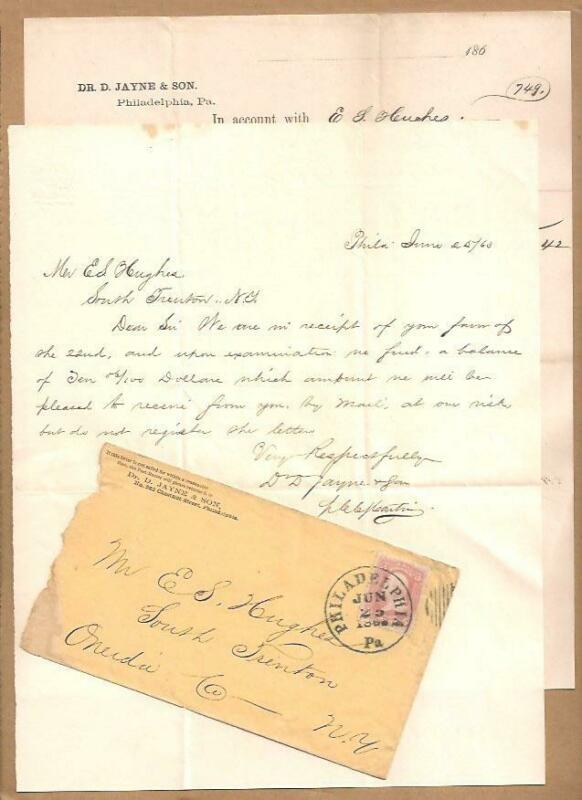 186
DR. D. JAYNE & SON.
Philadelphia, Pa.
749.
In account with E S Hughes.
42
Phila June 25/60
Mr E S Hughes
South Trenton, N.Y.
Dear Sir We are in receipt of your favor of
the 22nd, and upon examination we find a balance
of Ten /100 Dollars which amount we will be
pleased to receive from you, by Mail, at our risk,
but do not register the letter
Very Respectfully
Dr D Jayne & Son
If this letter is not called for within a reasonable
time, the Post Master will please return it to
Dr. D. JAYNE & SON,
No. 242 Chestnut Street, Philadelphia.
Mr E S. Hughes
South Trenton
Oneida Co
N.Y
PHILADELPHIA
JUN
25
Pa